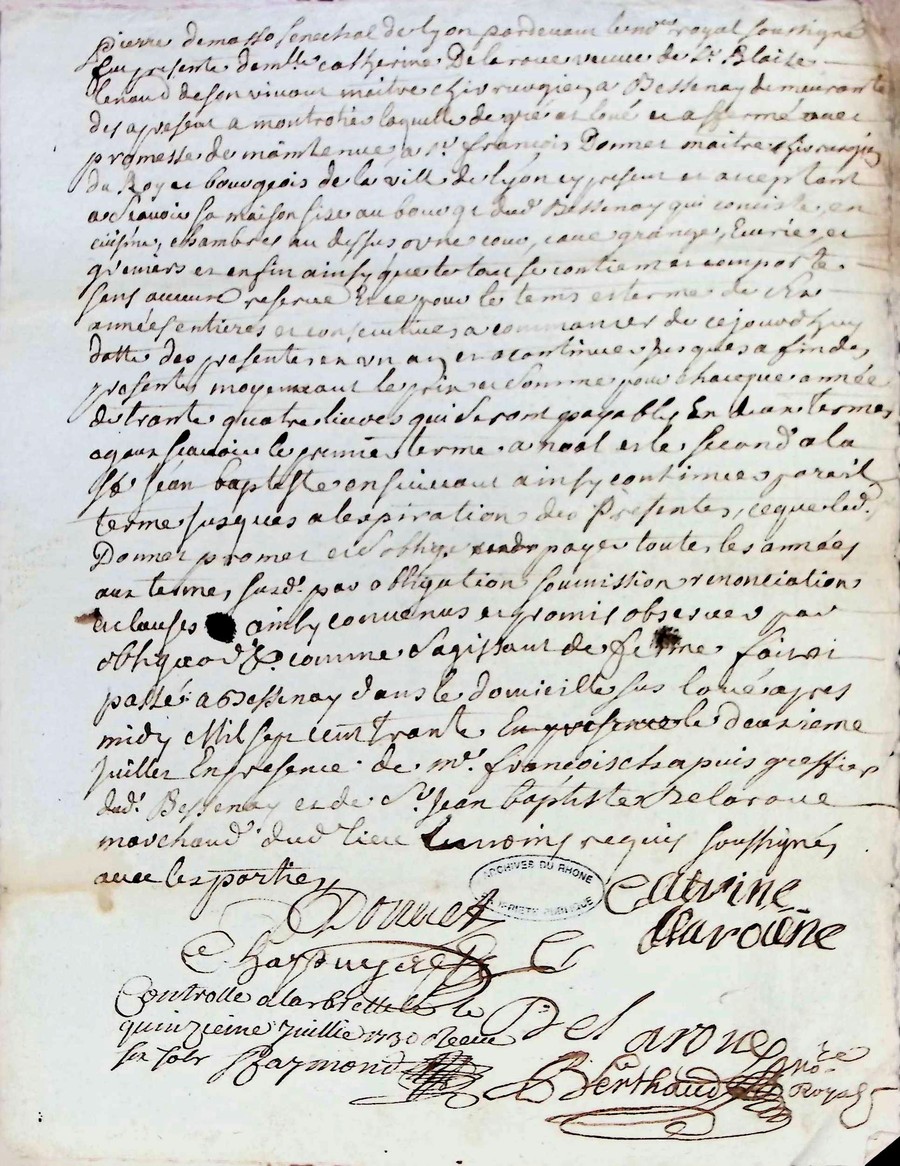 Pierre demasso senechal de Lyon pardevant le not.re royal soussigné
fut presente dem.lle catherine Delaroue veuve de S.r Blaise
Renaud de son vivant maitre chirurgien a Bessenay demeurante
des apresent a montrotie laquelle de gré at loué et affermé avec
promesse de maintenue a s.r françois Donnet maitre chirurgien
du Roy et bourgeois de la ville de Lyon cy present et acceptant
a scavoir sa maison size au bourg dud. Bessenay qui conciste, en
cuisine, chambres au dessus, cour, cave grange, Ecurie, et
greniers et enfin ainsy que le tout se contient et comporte
sans aucun reserve Et ce pour le tems et terme de six
années entieres et consecutives a commancer de cejourdhuy
datte des presentes en un an et a continuer jusques a fin des
presentes moyennant le prix et somme pour chacque année
de trante quatre livres qui seront payables En deux termes
egaux scavoir le premier terme a noel et le second a la
S.t jean baptiste ensuivant ainsy continuer pareil
terme jusques a lexpiration des Presentes, ce que led.
Donnet promet et soblige payer toutes les années
aux termes susd. par obligation soumission renonciations
et clauses ainsy convenus et promis observer par
obligeo d. &c. comme sagissant de ferme fait et
passé a Bessenay dans le domicille sus loué apres
midy Mil sept cent trante En presence le deuxieme
juillet En presence de m.e françois chapuis greffier
dud. Bessenay et de S.r jean baptiste Delaroue
marchand dud. lieu temoins requis soussignés
avec les parties
Donnet
Caterine
Chappuys
ARCHIVES DU RHONE
PROPRIETE PUBLIQUE
Controllé a larbrelle le
quinzieme juillie 1730 Receu
six sols Raymond
Delaroue
Berthaud no.re
Royal